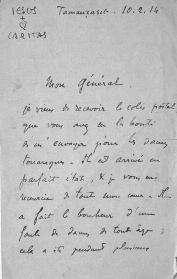 JESUS
CARITAS
Tamanrasset - 10.2.14
Mon Général,
Je viens de recevoir le colis postal
que vous avez eu la bonté
de m'envoyer pour les dames
touaregues - Il est arrivé en
parfait état, & je vous en
remercie de tout mon cœur - Il
a fait le bonheur d'une
foule de dames de tout âge ;
cela a été pendant plusieurs